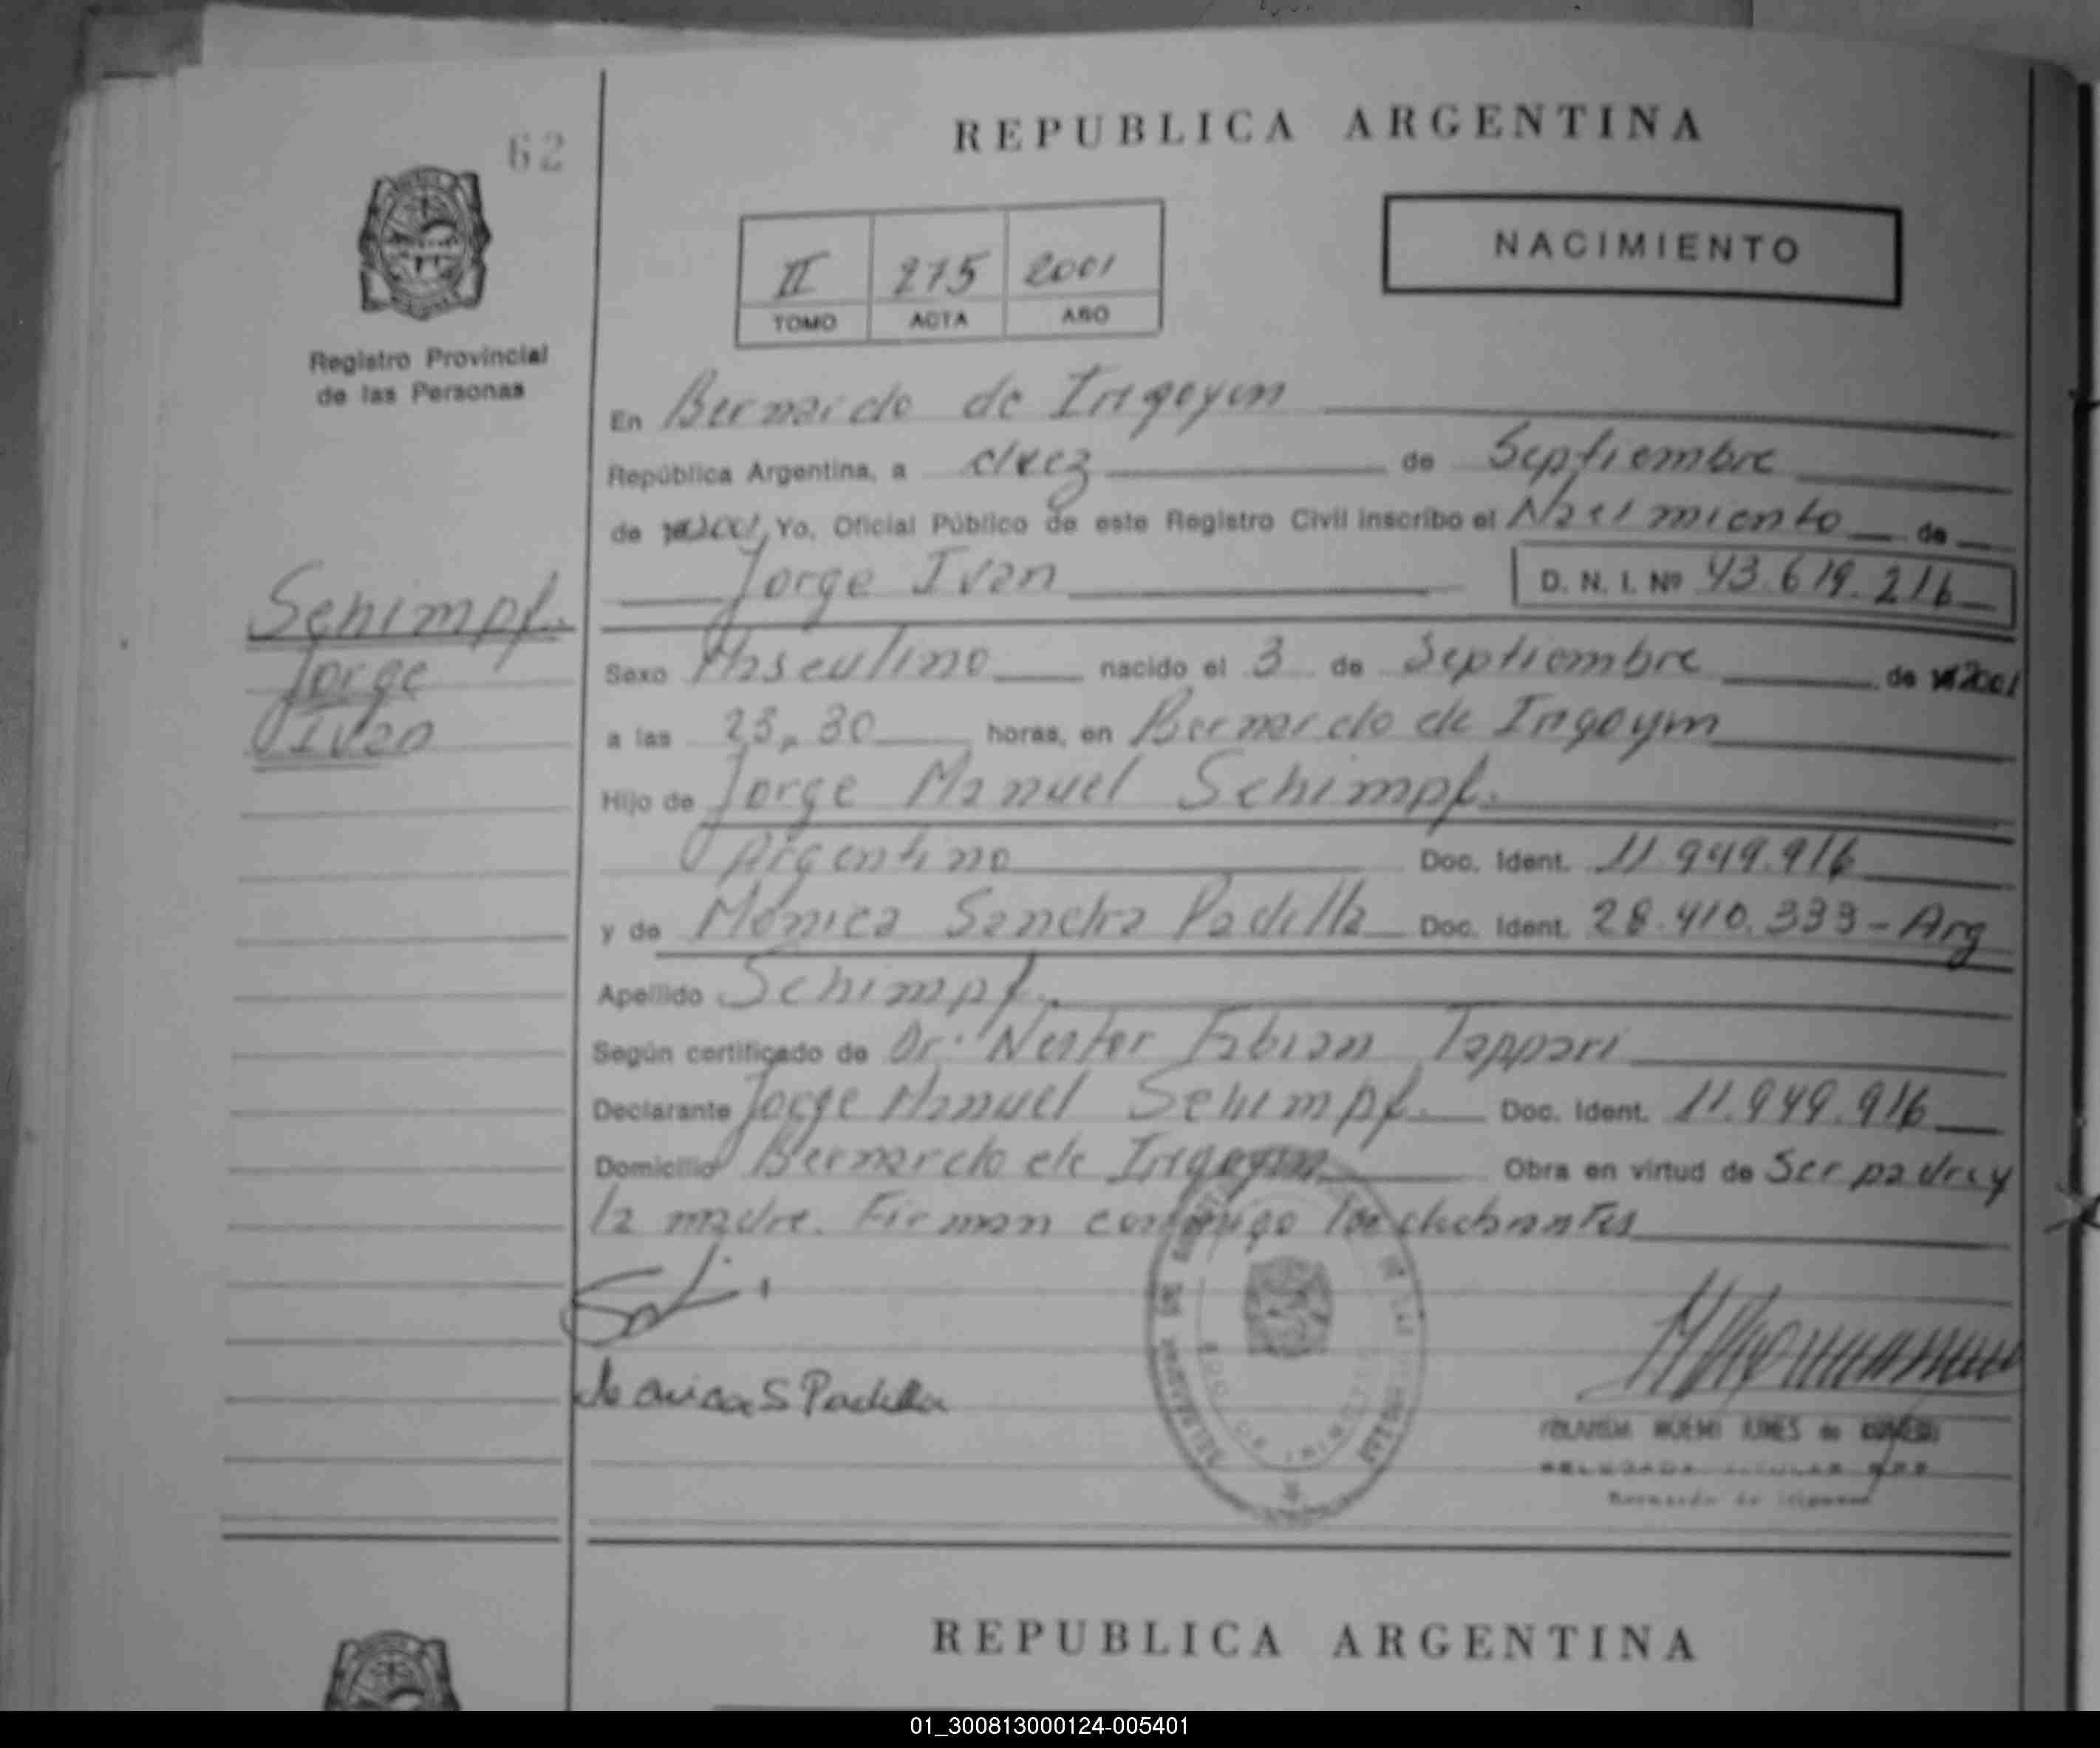 62
REPUBLICA ARGENTINA
NACIMIENTO
II 275 2001
TOMO ACTA AÑO
Registro Provincial
de las Personas
En Bernardo de Irigoyen
República Argentina, a diez de Septiembre
de 2001, Yo, Oficial Público de este Registro Civil inscribo el Nacimiento de
Jorge Ivan D. N. I. Nº 43.619.216
Schimpf.
Jorge
Ivan
Sexo Masculino nacido el 3 de Septiembre de 2001
a las 23,30 horas, en Bernardo de Irigoyen
Hijo de Jorge Manuel Schimpf.
Argentino Doc. Ident. 11.949.916
y de Mónica Sandra Padilla Doc. Ident. 28.410.333 - Arg
Apellido Schimpf.
Según certificado de Dr. Nestor Fabian Tappari
Declarante Jorge Manuel Schimpf. Doc. Ident. 11.949.916
Domicilio Bernardo de Irigoyen Obra en virtud de Ser padre y
la madre. Firman conmigo los
Monica S Padilla
NOEMI de
Bernardo de Irigoyen
REPUBLICA ARGENTINA
01_300813000124-005401